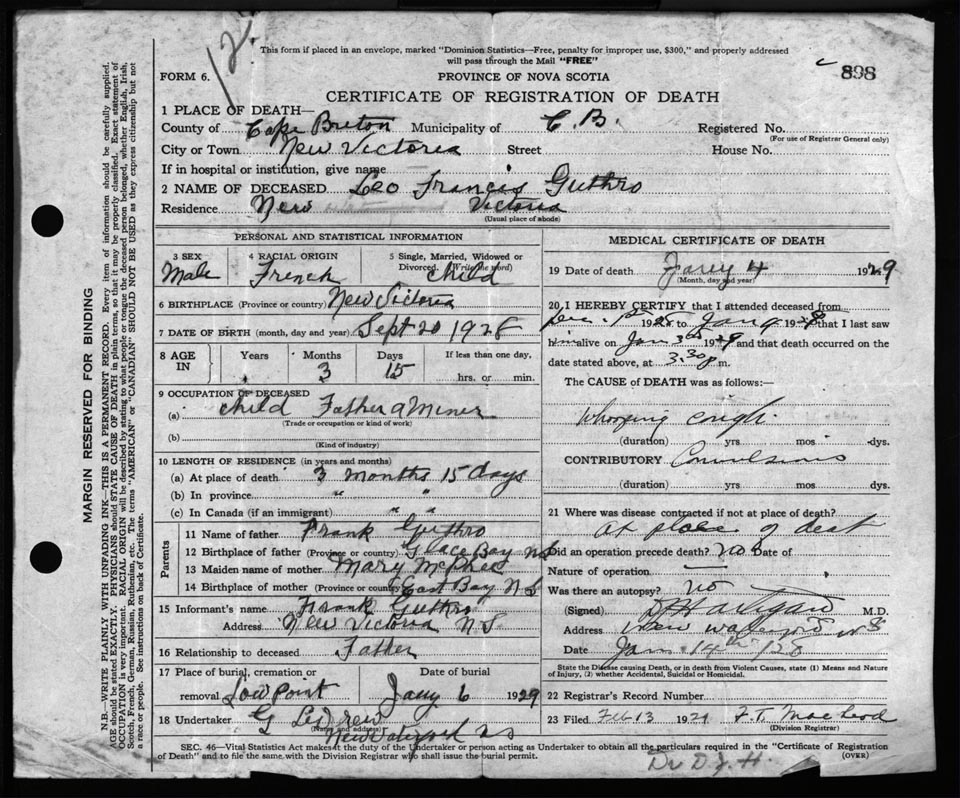 This form if placed in an envelope, marked "Dominion Statistics—Free, penalty for improper use, $300," and properly addressed
will pass through the Mail "FREE"
12.
898
FORM 6.
PROVINCE OF NOVA SCOTIA
CERTIFICATE OF REGISTRATION OF DEATH
1 PLACE OF DEATH—
County of Cape Breton Municipality of C. B. Registered No.
(For use of Registrar General only)
City or Town New Victoria Street House No.
If in hospital or institution, give name
2 NAME OF DECEASED Leo Francis Guthro
Residence New Victoria
(Usual place of abode)
PERSONAL AND STATISTICAL INFORMATION
3 SEX Male
4 RACIAL ORIGIN French
5 Single, Married, Widowed or
Divorced. (Write the word) Child
6 BIRTHPLACE (Province or country) New Victoria
7 DATE OF BIRTH (month, day and year) Sept 20 1928
8 AGE IN
Years Months Days If less than one day,
3 15 hrs. or min.
9 OCCUPATION OF DECEASED
(a) Child Father a Miner
(Trade or occupation or kind of work)
(b)
(Kind of industry)
10 LENGTH OF RESIDENCE (in years and months)
(a) At place of death 3 months 15 days
(b) In province " "
(c) In Canada (if an immigrant) " "
Parents
11 Name of father Frank Guthro
12 Birthplace of father (Province or country) Glace Bay NS
13 Maiden name of mother Mary McPhee
14 Birthplace of mother (Province or country) East Bay N S
15 Informant's name Frank Guthro
Address New Victoria N.S.
16 Relationship to deceased Father
17 Place of burial, cremation or removal Low Point
Date of burial Jany 6 1929
18 Undertaker G
(Name and address)
MEDICAL CERTIFICATE OF DEATH
19 Date of death Jany 4 1929
(Month, day and year)
20 I HEREBY CERTIFY that I attended deceased from
Dec. 1928 to Jan 1929 that I last saw
him alive on Jan 3rd 1929 and that death occurred on the
date stated above, at 3.30 p. m.
The CAUSE of DEATH was as follows:
Whooping cough.
(duration) yrs mos dys.
CONTRIBUTORY Convulsions
(duration) yrs. mos. dys.
21 Where was disease contracted if not at place of death?
at place of death
Did an operation precede death? No Date of
Nature of operation —
Was there an autopsy? No
(Signed) M.D.
Address New Waterford N S
Date Jan 14th
State the Disease causing Death, or in death from Violent Causes, state (1) Means and Nature
of Injury, (2) whether Accidental, Suicidal or Homicidal.
22 Registrar's Record Number
23 Filed Feb 13 1929 F. T. MacLeod
(Division Registrar)
SEC. 46—Vital Statistics Act makes it the duty of the Undertaker or person acting as Undertaker to obtain all the particulars required in the "Certificate of Registration
of Death" and to file the same with the Division Registrar who shall issue the burial permit. (OVER)
Dr D. J. H.
MARGIN RESERVED FOR BINDING
N.B.—WRITE PLAINLY WITH UNFADING INK—THIS IS A PERMANENT RECORD. Every item of information should be carefully supplied.
AGE should be stated EXACTLY. PHYSICIANS should STATE CAUSE OF DEATH in plain terms, so that it may be properly classified. Exact statement of
OCCUPATION is very important. RACIAL ORIGIN will be described by stating to what people or tongue the deceased person belonged, whether English, Irish,
Scotch, French, German, Russian, Ruthenian, etc. The terms "AMERICAN" or "CANADIAN" SHOULD NOT BE USED as they express citizenship but not
a race or people. See instructions on back of Certificate.